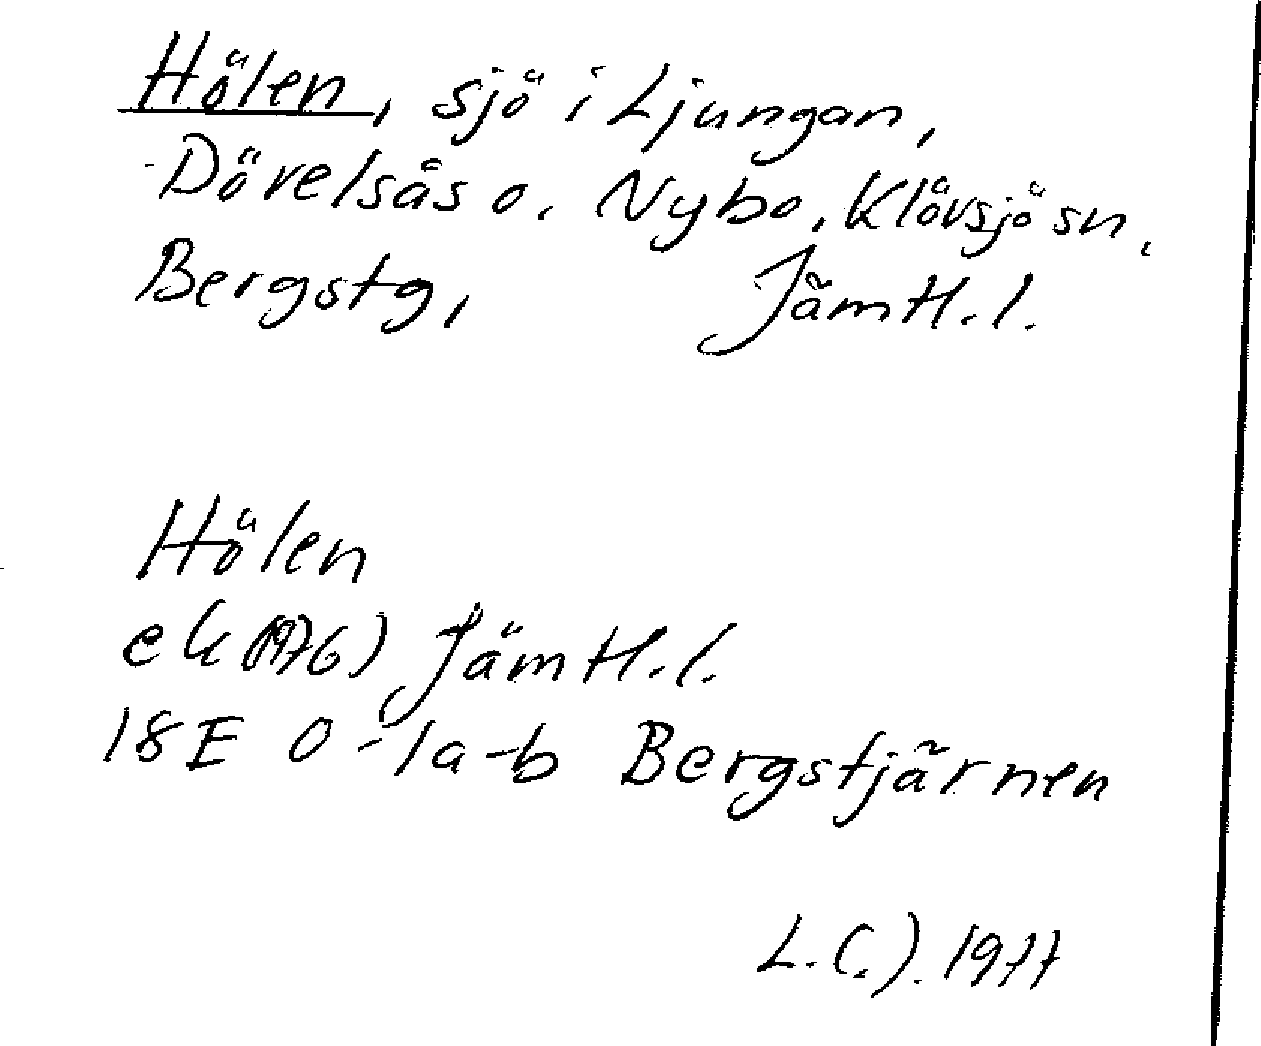 Hölen, sjö i Ljungan,
Dövelsås o. Nybo, Klövsjö sn,
Bergstg, Jämtl. l.
Hölen
ek (1976) Jämtl. l.
18E 0-1a-b Bergstjärnen
1977